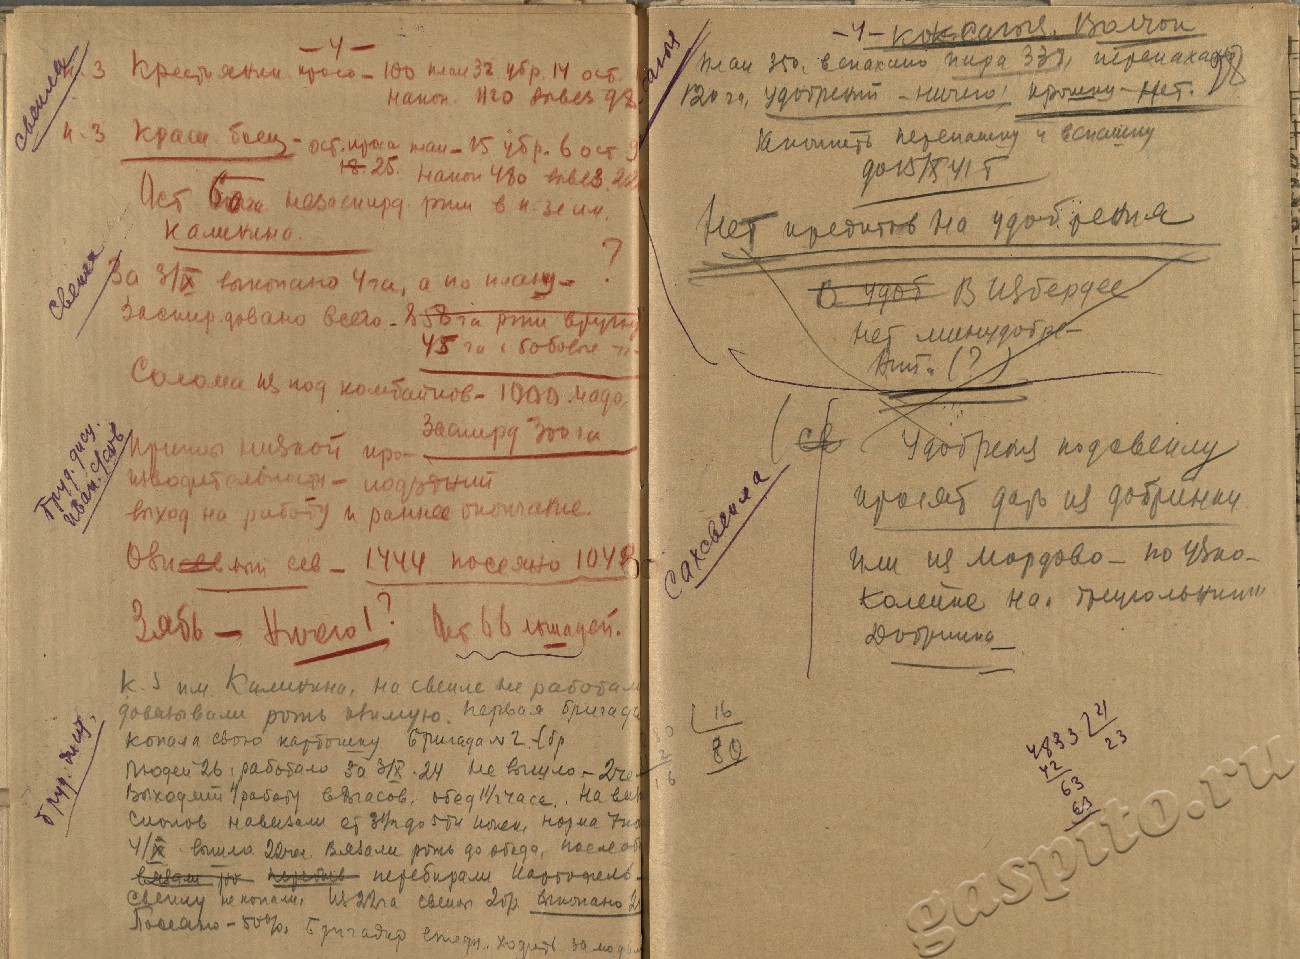 -4-
свекла
к.3 Крестьянин. просо - 100 план 32 убр. 14 ост.
накоп. 420 вывез 98
к.3 Красн. боец - ост. проса план - 15 убр. 6 ост 9
18.25. Накоп 480 вывез. 22
Ост 60га незаскирд. ржи в к-зе им.
Калинина.
свекла
За 3/IX выкопано 4 га, а по плану - ?
Заскирдовано всего - 858 га ржи вкруг
45 га с бобовые
Солома из под комбайнов - 1000. надо.
Заскирд 300 га
Труд. дисц.
Причины низкой про-
изводительности - поздний
выход на работу и раннее окончание.
Озимый сев - 1444 посеяно 1048
Зябь - Ничего! ? Ост. 66 лошадей.
Труд. дисц.
К.З им. Калинина, на свекле не работали
довязывали рожь озимую. Первая бригада
копала свою картошку Бригада №2.
Людей 26, работало за 3/IX - 24 не вышло - 2че
Выходят работу в 8 часов, обед 1 1/2 часа. На
снопов навязали от 3 до 5ти копен, норма 7
4/IX вышло 22че. Вязали рожь до обеда, после об
вязали перебирали Картофель.
Свеклу не копали. Из 22га свеклы 2бр. выкопано 2
Посеяно - 50%. Бригадир ходить за
-4- кок-сагыз. Волчок
План 350, вспахано пара 338, перепахано 98
120 га, удобрений - ничего! Крошку - Нет.
Закончить перепашку и вспашку
до 15/IX 41 г
Нет кредитов На удобрения
В удоб В Избердее
нет минудобре-
ний. (?)
св Удобрения под свеклу
просят дать из Добринки
Или из Мордово - по узко-
колейке на. треугольнике
Добринка
сахсвекла
80
2
16
16
80
4833 21
42 23
63
63
gaspito.ru